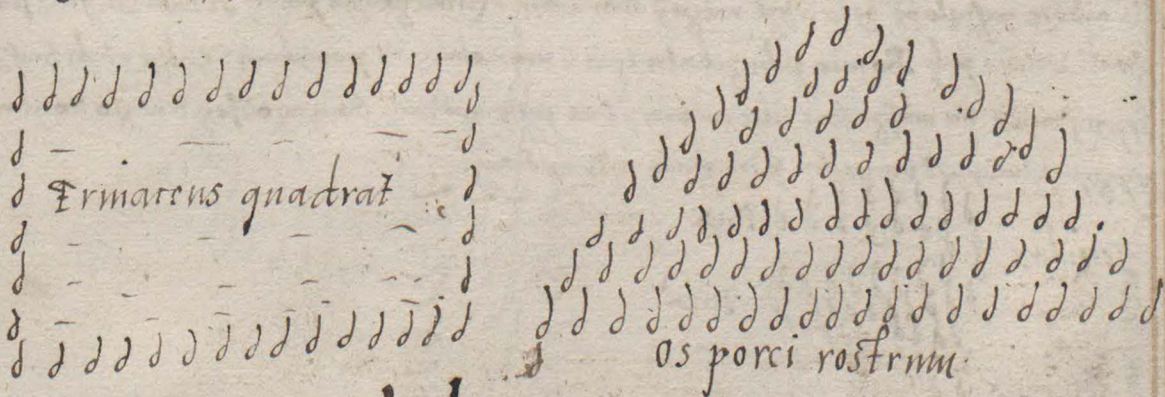 Erinaceus quadrat
os porci rostrum